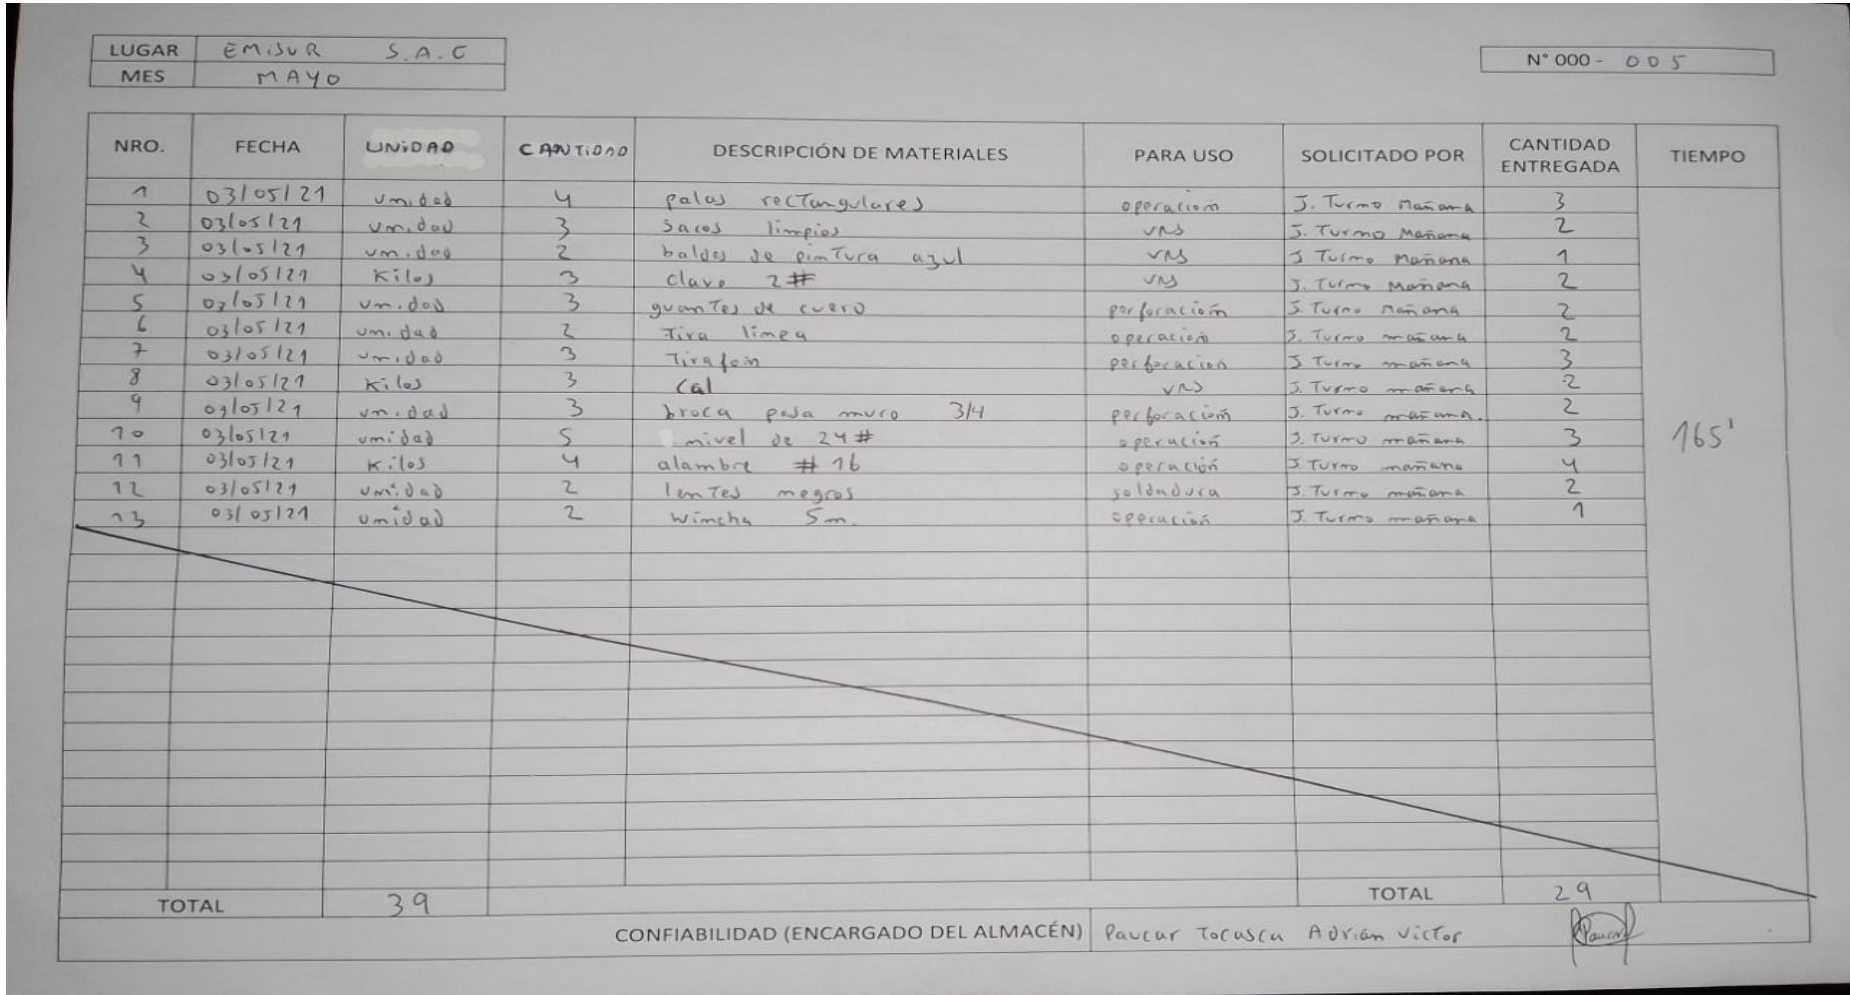 LUGAR EMISUR S.A.C
MES MAYO
N° 000 - 005
NRO. FECHA UNIDAD CANTIDAD DESCRIPCIÓN DE MATERIALES PARA USO SOLICITADO POR CANTIDAD ENTREGADA TIEMPO
1 03/05/21 unidad 4 palas rectangulares operación J. Turno Mañana 3
2 03/05/21 unidad 3 Sacos limpios J. Turno Mañana 2
3 03/05/21 unidad 2 baldes de pintura azul J Turno Mañana 1
4 03/05/21 Kilos 3 clavo 2# J. Turno Mañana 2
5 03/05/21 unidad 3 guantes de cuero perforación J. Turno Mañana 2
6 03/05/21 unidad 2 Tira linea operación J. Turno mañana 2
7 03/05/21 unidad 3 Tirafon perforación J Turno mañana 3
8 03/05/21 Kilos 3 Cal J. Turno mañana 2
9 03/05/21 unidad 3 broca pasa muro 3/4 perforación J. Turno mañana. 2
10 03/05/21 unidad 5 nivel de 24# operación J. Turno mañana 3
11 03/05/21 Kilos 4 alambre # 16 operación J. Turno mañana 4
12 03/05/21 unidad 2 lentes negros soldadura J. Turno mañana 2
13 03/05/21 unidad 2 wincha 5m. operación J. Turno mañana 1
165'
TOTAL 39 TOTAL 29
CONFIABILIDAD (ENCARGADO DEL ALMACÉN) Paucar Tocasca Adrián Victor